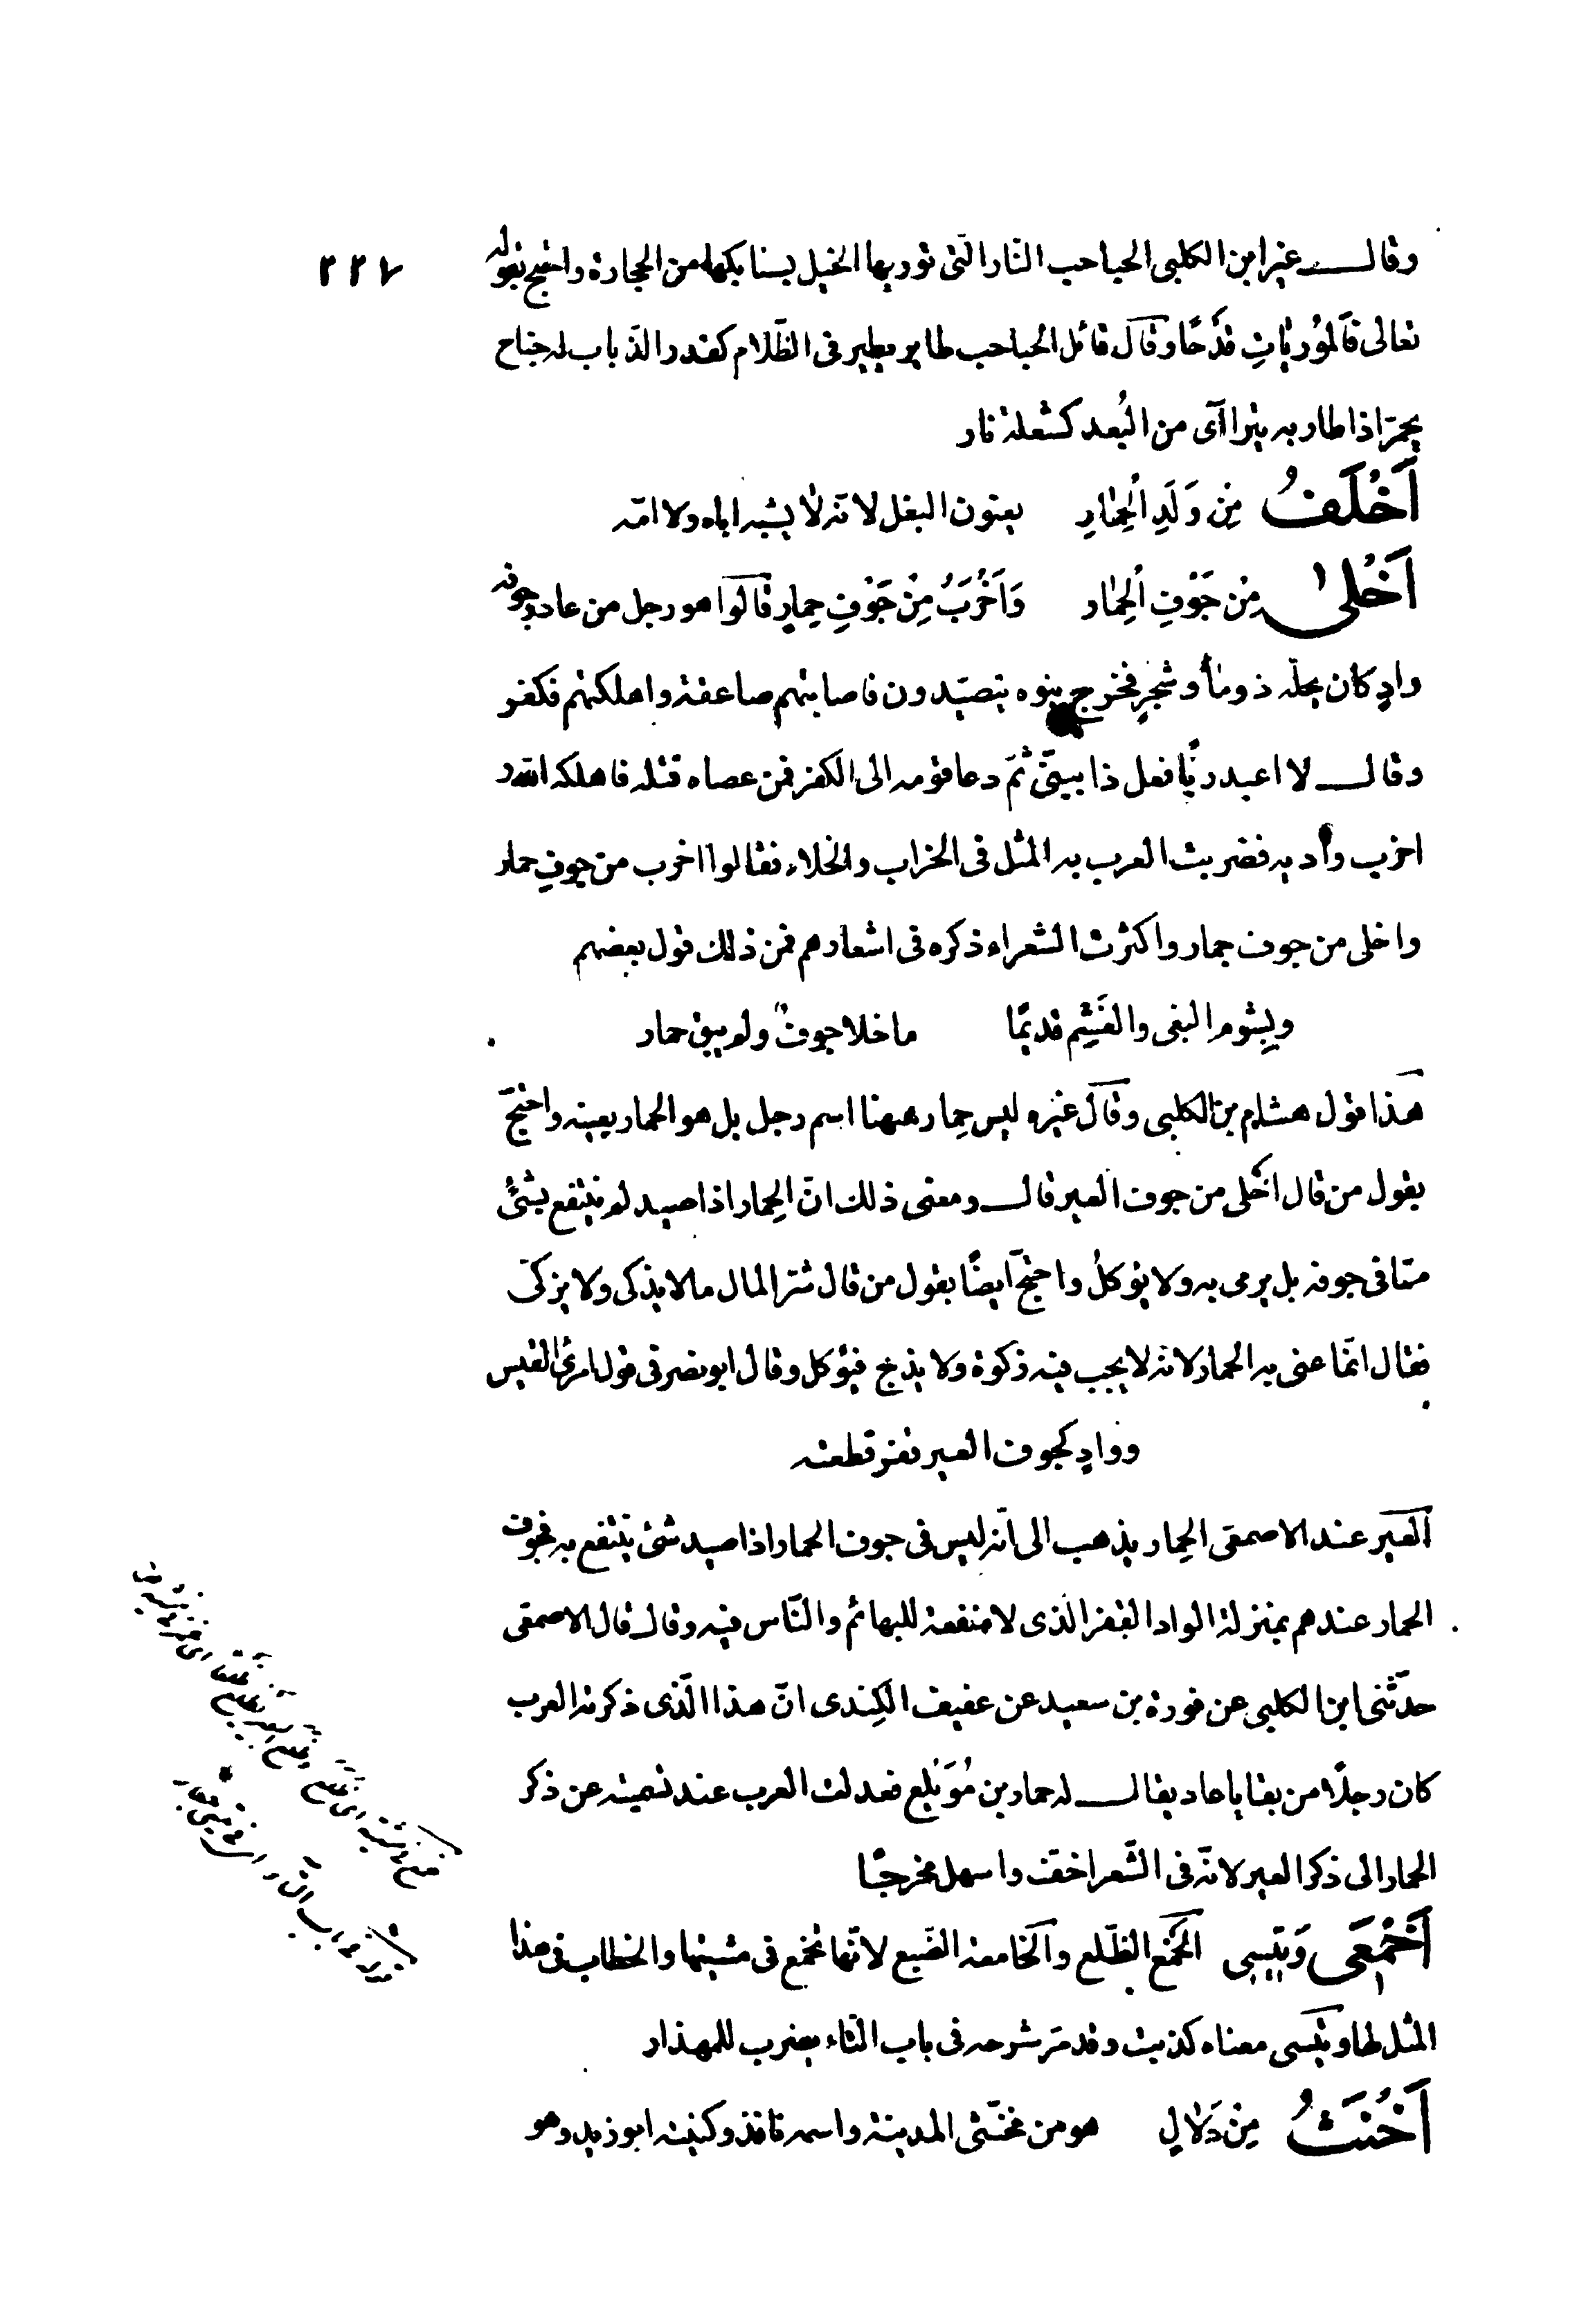 ٢٢٧
وقال غير ابن الكلبى الحباحب النّار الّتى توريها الخيل بسنابكها من الحجارة واحتج بقوله
تعالى فَالمُورِيَاتِ قَدْحًا وقال قائل الحباحب طاير يطير فى الظّلام كقدر الذّباب له جناح
يحمرّ اذا طار به يتراآى من البُعد كشعلة نار
اَخْلَفُ مِن وَلَدِ اْلحِمٰارِ يعنون البغل لانّه لا يشبه اباه ولا امّه
اَخْلىٰ مِنْ جَوْفِ اْلحِمٰار وَاَخْرَبُ مِنْ جَوْفِ حِمارٍ قالوا هو رجل من عاد وجوفه
وادٍ كان يحلّه ذو ماء وشجرٍ فخرج بنوه يتصيّدون فاصابتهم صاعقة واهلكتهم فكفر
وقال لا اعبد ربًّا فعل ذا ببنىّ ثمّ دعا قومه الى الكفر فمن عصاه قتله فاهلكه الله و
اخرب واديه فضربت العرب به المثل فى الخراب والخلاء فقالوا اخرب من جوفِ حمار
واخلى من جوف حمار واكثرت الشعراء ذكره فى اشعارهم فمن ذلك قول بعضهم
وبِشوم البغى والغَشِم قديمًا ما خلا جوفٌ ولم يبق حمار
هذا قول هشام بن الكلبى وقال غيره ليس حِمار ههنا اسم رجل بل هو الحمار بعينه واحتجّ
بقول من قال اخلى من جوف العير قال ومعنى ذلك انّ الحِمار اذا صيد لم ينتفع بشئٍ
ممّا فى جوفه بل يرمى به ولا يؤكلُ واحتجّ ايضًا بقول من قال شرّ المال ما لا يذكى ولا يزكىّ
فقال انّما عنى به الحمار لانّه لا يجب فيه زكوة ولا يذبح فيؤكل وقال ابو نصر فى قول امرئ القيس
ووادٍ كجوف العير قفر قطعته
العَير عند الاصمعى الحِمار يذهب الى انّه ليس فى جوف الحمار اذا صيد شئ ينتفع به فجوف
الحمار عندهم بمنزلة الواد القفر الذى لا منفعة للبهائم والنّاس فيه وقال قال الاصمعى
حدّثنى ابن الكلبى عن فورة بن سعيد عن عفيف الكِندى انّ هذا الّذى ذكرته العرب
كان رجلًا من بقايا عاد يقال له حمار بن مُوَيْلع فعدلت العرب عند تسميته عن ذكر
الحمار الى ذكر العير لانّه فى الشّعر اخفّ واسهل مخرجًا
اَخْمَعى وَتيسى الخمع الظّلع والخامعة الضّبع لانّها تخمع فى مشيتها والخطاب فى هذا
المثل لها وتَيسى معناه كذبت وقد مرّ شرحه فى باب التّاء يضرب للمهذار
اَخْنَثُ مِنْ دَلالٍ هو من مخنّثى المدينة واسمه نافذ وكنيته ابو زيد وهو